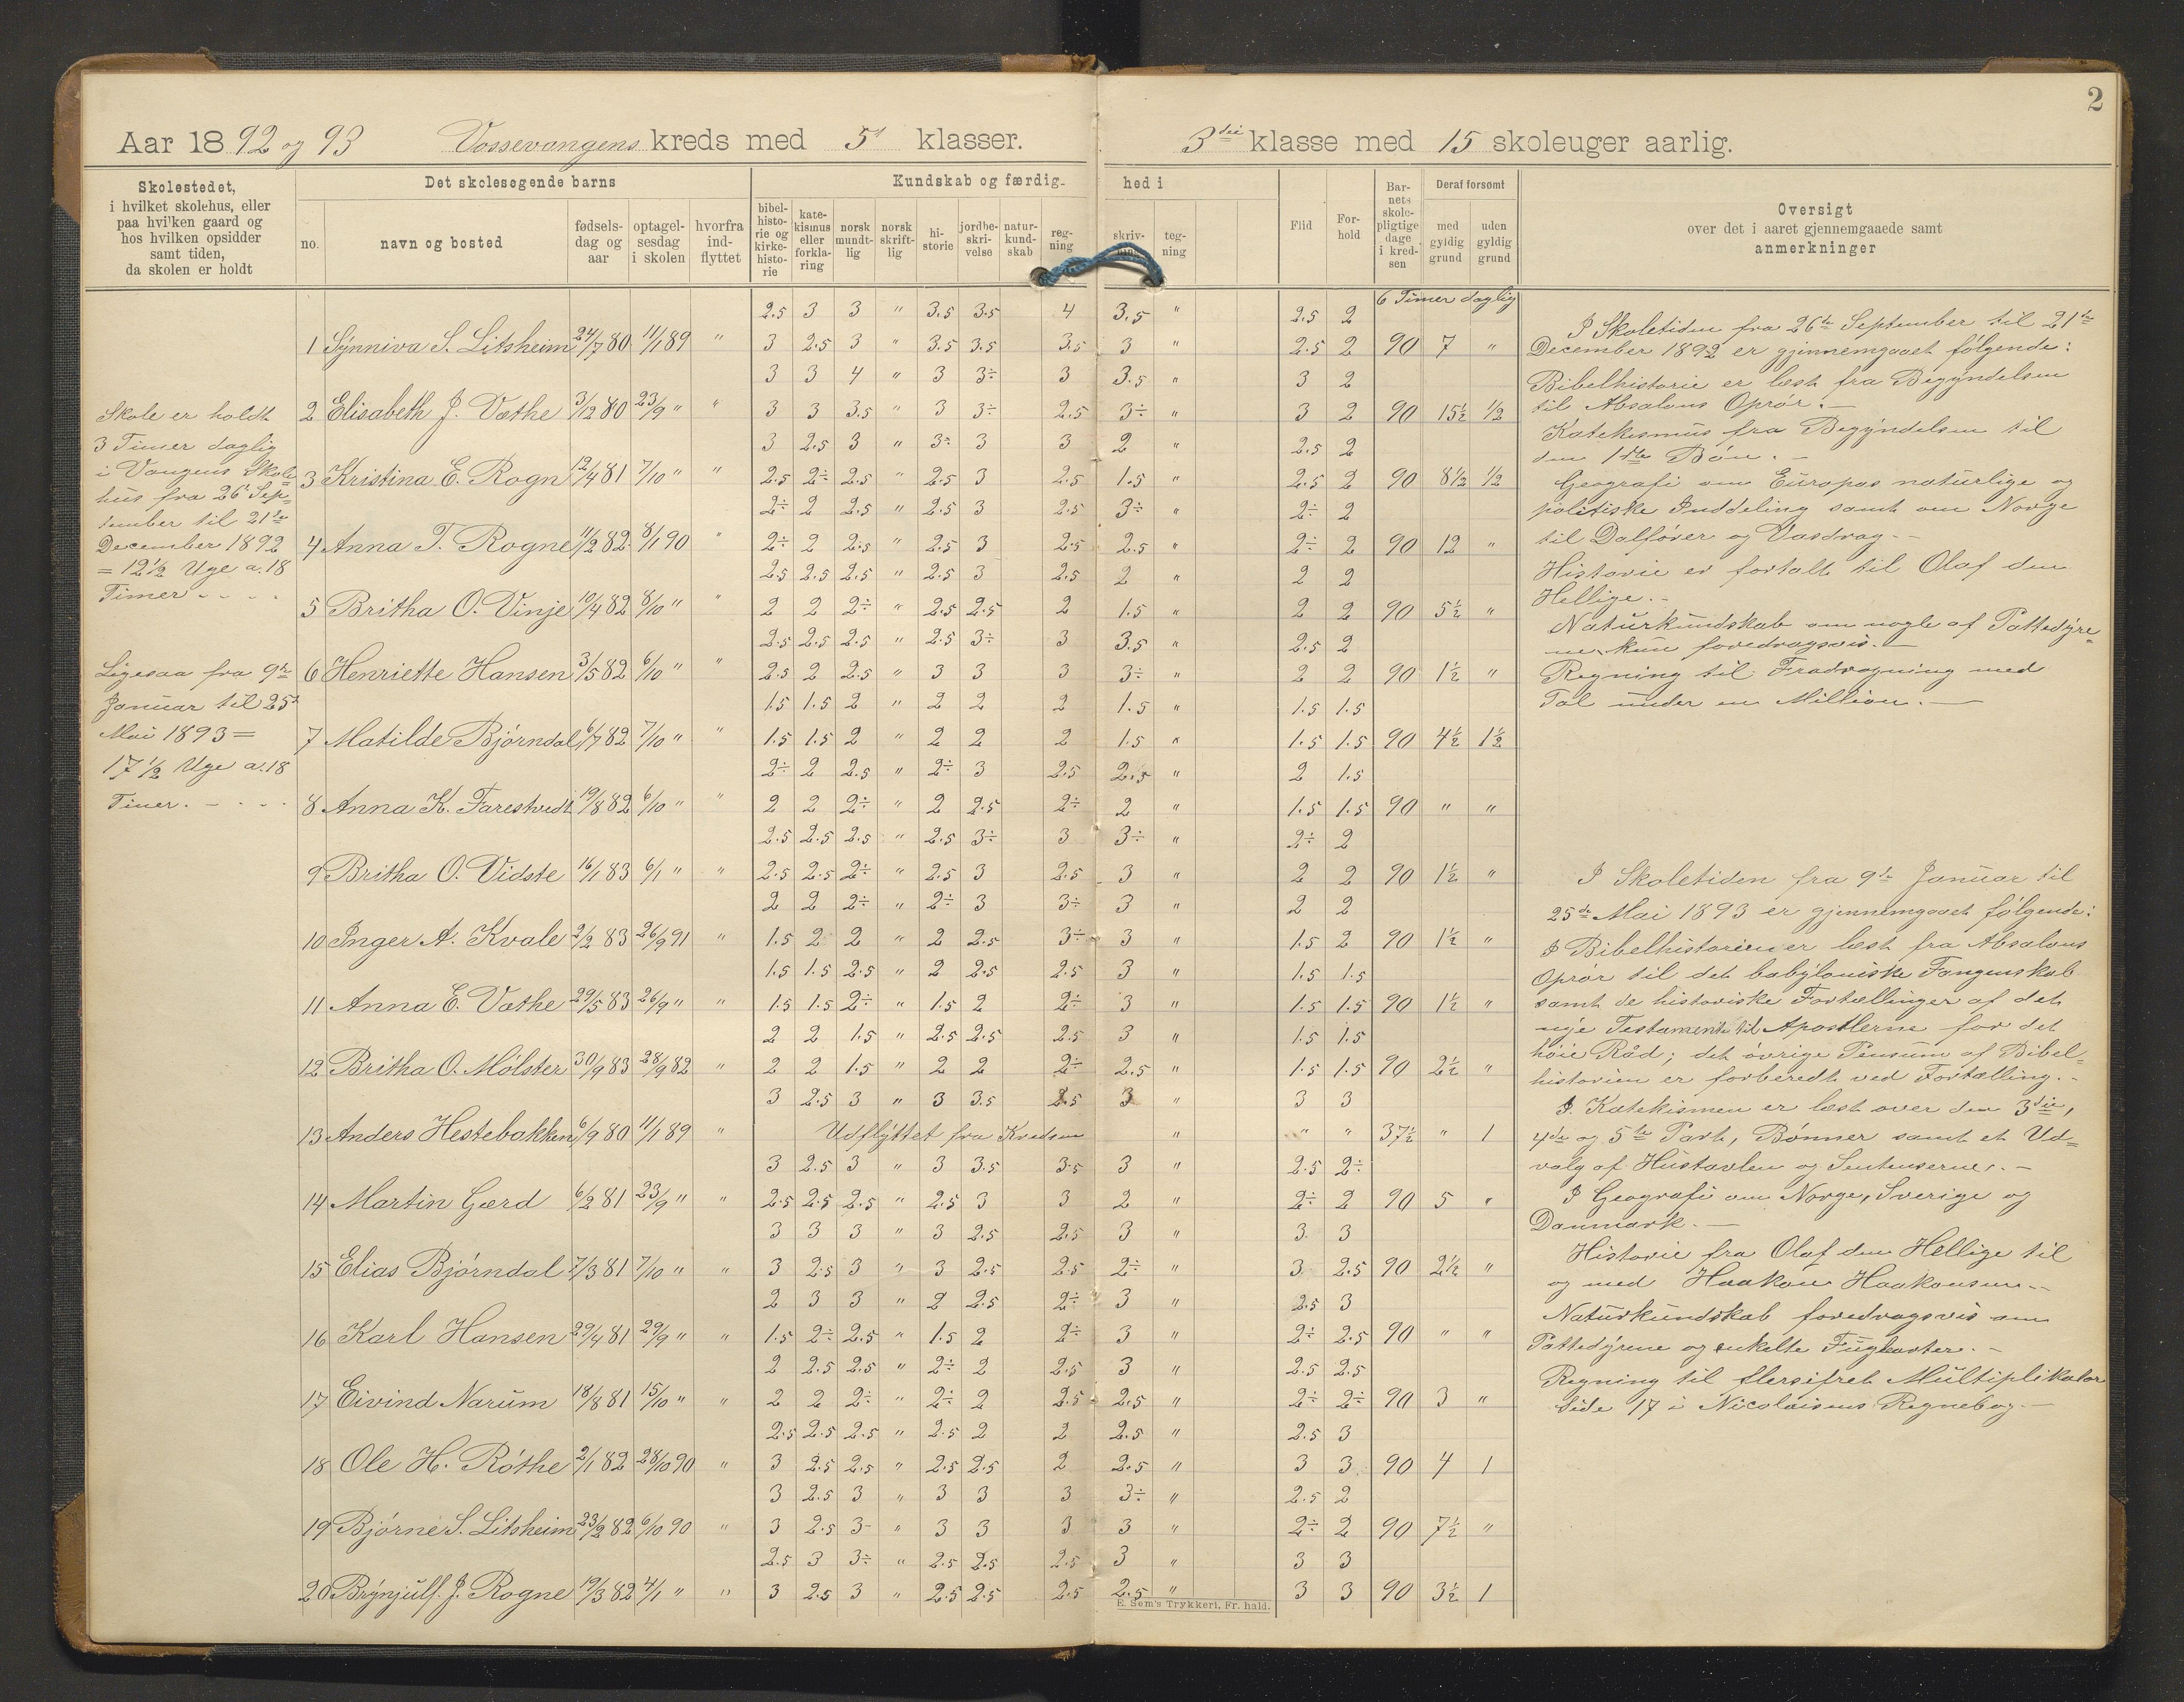 2
Aar 1892 og 93 Vossevangens kreds med 5 klasser. 3die klasse med 15 skoleuger aarlig.
Skolestedet,
i hvilket skolehus, eller
paa hvilken gaard og
hos hvilken opsidder
samt tiden,
da skolen er holdt
Det skolesøgende barns
no.
navn og bosted
fødsels-
dag og
aar
optagel-
sesdag
i skolen
hvorfra
ind-
flyttet
Kundskab og færdig-
hed i
bibel-
histo-
rie og
kirke-
histo-
rie
kate-
kismus
eller
forkla-
ring
norsk
mundt-
lig
norsk
skrift-
lig
hi-
storie
jordbe-
skri-
velse
natur-
kund-
skab
reg-
ning
skriv-
teg-
ning
Flid
For-
hold
Bar-
nets
skole-
pligtige
dage
i kred-
sen
Deraf forsømt
med
gyldig
grund
uden
gyldig
grund
Oversigt
over det i aaret gjennemgaaede samt
anmerkninger
Skole er holdt
3 Timer daglig
i Vangens Skole=
hus fra 26de Sep=
tember til 21de
December 1892
= 12 1/2 Uge a. 18
Timer - - - -
Ligesaa fra 9de
Januar til 25de
Mai 1893 =
17 1/2 Uge a. 18
Timer. - - - -
6 Timer daglig
2.5 3 3 " 3.5 3.5 4 3.5 " 2.5 2
1 Synniva S. Litsheim 24/7 80 11/1 89 " 3 2.5 3 " 3.5 3.5 3.5 3 " 2.5 2 90 7 "
3 3 4 " 3 3÷ 3 3.5 " 3 2
2 Elisabeth J. Væthe 3/12 80 23/9 " " 3 3 3.5 " 3 3÷ 2.5 3÷ " 3 2 90 15 1/2 1/2
3 2.5 3 " 3÷ 3 3 2 " 2.5 2
3 Kristina E. Rogn 12/4 81 7/10 " " 2.5 2÷ 2.5 " 2.5 3 2.5 1.5 " 2.5 2 90 8 1/2 1/2
2÷ 2 2.5 " 2.5 3 2.5 3÷ " 2÷ 2
4 Anna T. Rogne 11/2 82 8/1 90 " 2÷ 2 2.5 " 2.5 3 2.5 2.5 " 2÷ 2 90 12 "
2.5 2.5 2.5 " 2.5 3 2.5 2 " 2 2
5 Britha O. Vinje 10/4 82 8/10 " " 2 2 2÷ " 2.5 2.5 2 1.5 " 2 2 90 5 1/2 "
2.5 2.5 2.5 " 2.5 3÷ 3 3.5 " 2.5 2
6 Henriette Hansen 3/5 82 6/10 " " 2.5 2 2.5 " 3 3 3 3÷ " 2 2 90 1 1/2 "
1.5 1.5 2 " 2 2 2 1.5 " 1.5 1.5
7 Matilde Bjørndal 6/7 82 7/10 " " 1.5 1.5 2 " 2 2 2 1.5 " 1.5 1.5 90 4 1/2 1 1/2
2÷ 2 2.5 " 2÷ 3 2.5 2.5 " 2 1.5
8 Anna K. Farestvedt 19/8 82 6/10 " " 2 2 2÷ " 2 2.5 2÷ 2 " 1.5 1.5 90 " "
2.5 2.5 2.5 " 2.5 3÷ 3 3÷ " 2÷ 2
9 Britha O. Vidste 16/1 83 6/1 " " 2.5 2.5 2÷ " 2.5 3 2.5 3 " 2 2 90 1 1/2 "
2 2 2÷ " 2÷ 3 3÷ 3 " 2 2
10 Inger A. Kvale 2/2 83 26/9 91 " 1.5 2 2 " 2 2.5 3÷ 3 " 1.5 2 90 1 1/2 "
1.5 1.5 2.5 " 2 2.5 2.5 3 " 1.5 1.5
11 Anna E. Væthe 29/5 83 26/9 " " 1.5 1.5 2÷ " 1.5 2 2÷ 3 " 1.5 1.5 90 1 1/2 "
2 2 1.5 " 2.5 2.5 2.5 3 " 1.5 1.5
12 Britha O. Mölster 30/9 83 28/9 82 " 2 2 1.5 " 2 2 2÷ 2.5 " 1.5 1.5 90 2 1/2 "
3 2.5 3 " 3 3.5 2.5 3 " 3 3
13 Anders Hestebakken 6/9 80 11/1 89 " Udflyttet fra Kredsen " " " 37 1/2 " 1
3 2.5 3 " 3 3.5 3.5 3 " 2.5 2÷
14 Martin Gærd 6/2 81 23/9 " " 2.5 2.5 2.5 " 2.5 3 3 2 " 2÷ 2 90 5 "
3 3 3 " 3 2.5 2.5 3 " 3 3
15 Elias Bjørndal 7/3 81 7/10 " " 3 2.5 3 " 3 2.5 2.5 2÷ " 3 2.5 90 2 1/2 "
2 3 3 " 2 2.5 2÷ 3 " 2.5 3
16 Karl Hansen 29/4 81 29/9 " " 1.5 2÷ 2.5 " 1.5 2 2÷ 3 " 2÷ 2.5 90 " "
2 2.5 2.5 " 2÷ 2 2.5 3 " 2.5 2.5
17 Eivind Narum 18/8 81 15/10 " " 2 2 2÷ " 2÷ 2 2.5 2.5 " 2÷ 2÷ 90 3 "
2.5 2.5 2.5 " 2.5 2 2 2.5 " 2.5 3
18 Ole H. Röthe 2/1 82 28/10 90 " 3 2.5 2.5 " 2.5 2.5 2 2.5 " 3 3 90 4 1
3 2.5 3 " 3 3 3 3÷ " 2.5 2
19 Bjørne S. Litsheim 23/2 82 6/10 90 " 3 2.5 3- " 3 3 3 3 " 2÷ 2 90 7 1/2 "
2.5 3 3÷ " 2.5 2.5 2.5 3 " 3 3
20 Brynjulf. J. Rogne 19/3 82 4/1 " " 3 2.5 3 " 2.5 2.5 2.5 2.5 " 3 3 90 3 1/2 1
E. Sem's Trykkeri, Fr. hald.
I Skoletiden fra 26de September til 21de
December 1892 er gjennemgaaet følgende:
Bibelhistorie er læst fra Begyndelsen
til Absalons Oprør. -
Katekismus fra Begyndelsen til
den 1ste Bøn. -
Geografi om Europas naturlige og
politiske Inddeling samt om Norge
til Dalfører og Vasdrag. -
Historie er fortalt til Olaf den
Hellige. -
Naturkundskab om nogle af Pattedyre=
ne kun foredragsvis. -
Regning til Fradragning med
Tal under en Million. -
I Skoletiden fra 9de Januar til
25de Mai 1893 er gjennemgaaet følgende:
I Bibelhistorien er læst fra Absalons
Oprør til det babyloniske Fangenskab
samt de historiske Fortællinger af det
nye Testamente til Apostlerne for det
høie Råd; det øvrige Pensum af Bibel=
historien er forberedt ved Fortælling. -
I Katekismen er læst over den 3die,
4de og 5te Part, Bønner samt et Ud=
valg af Hustavlen og Sentenserne. -
I Geografi om Norge, Sverige og
Danmark. -
Historie fra Olaf den Hellige til
og med Haakon Haakonsen. -
Naturkundskab foredragsvis om
Pattedyrene og enkelte Fuglearter. -
Regning til flersifret Multiplikator
Side 17 i Nicolaisens Regnebog. -